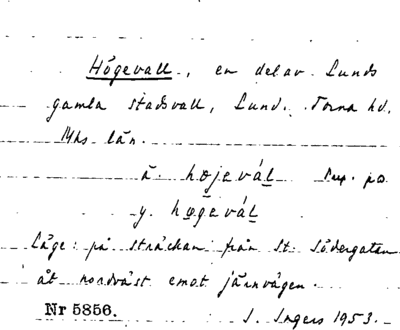 Högevall, en del av Lunds
gamla stadsvall, Lund. Torna hd.
Mhs län.
ä. højevál
y. høgevál
Läge: på sträckan från St. Södergatan
åt nordväst emot järnvägen.
Nr 5856.
I. Ingers 1953.